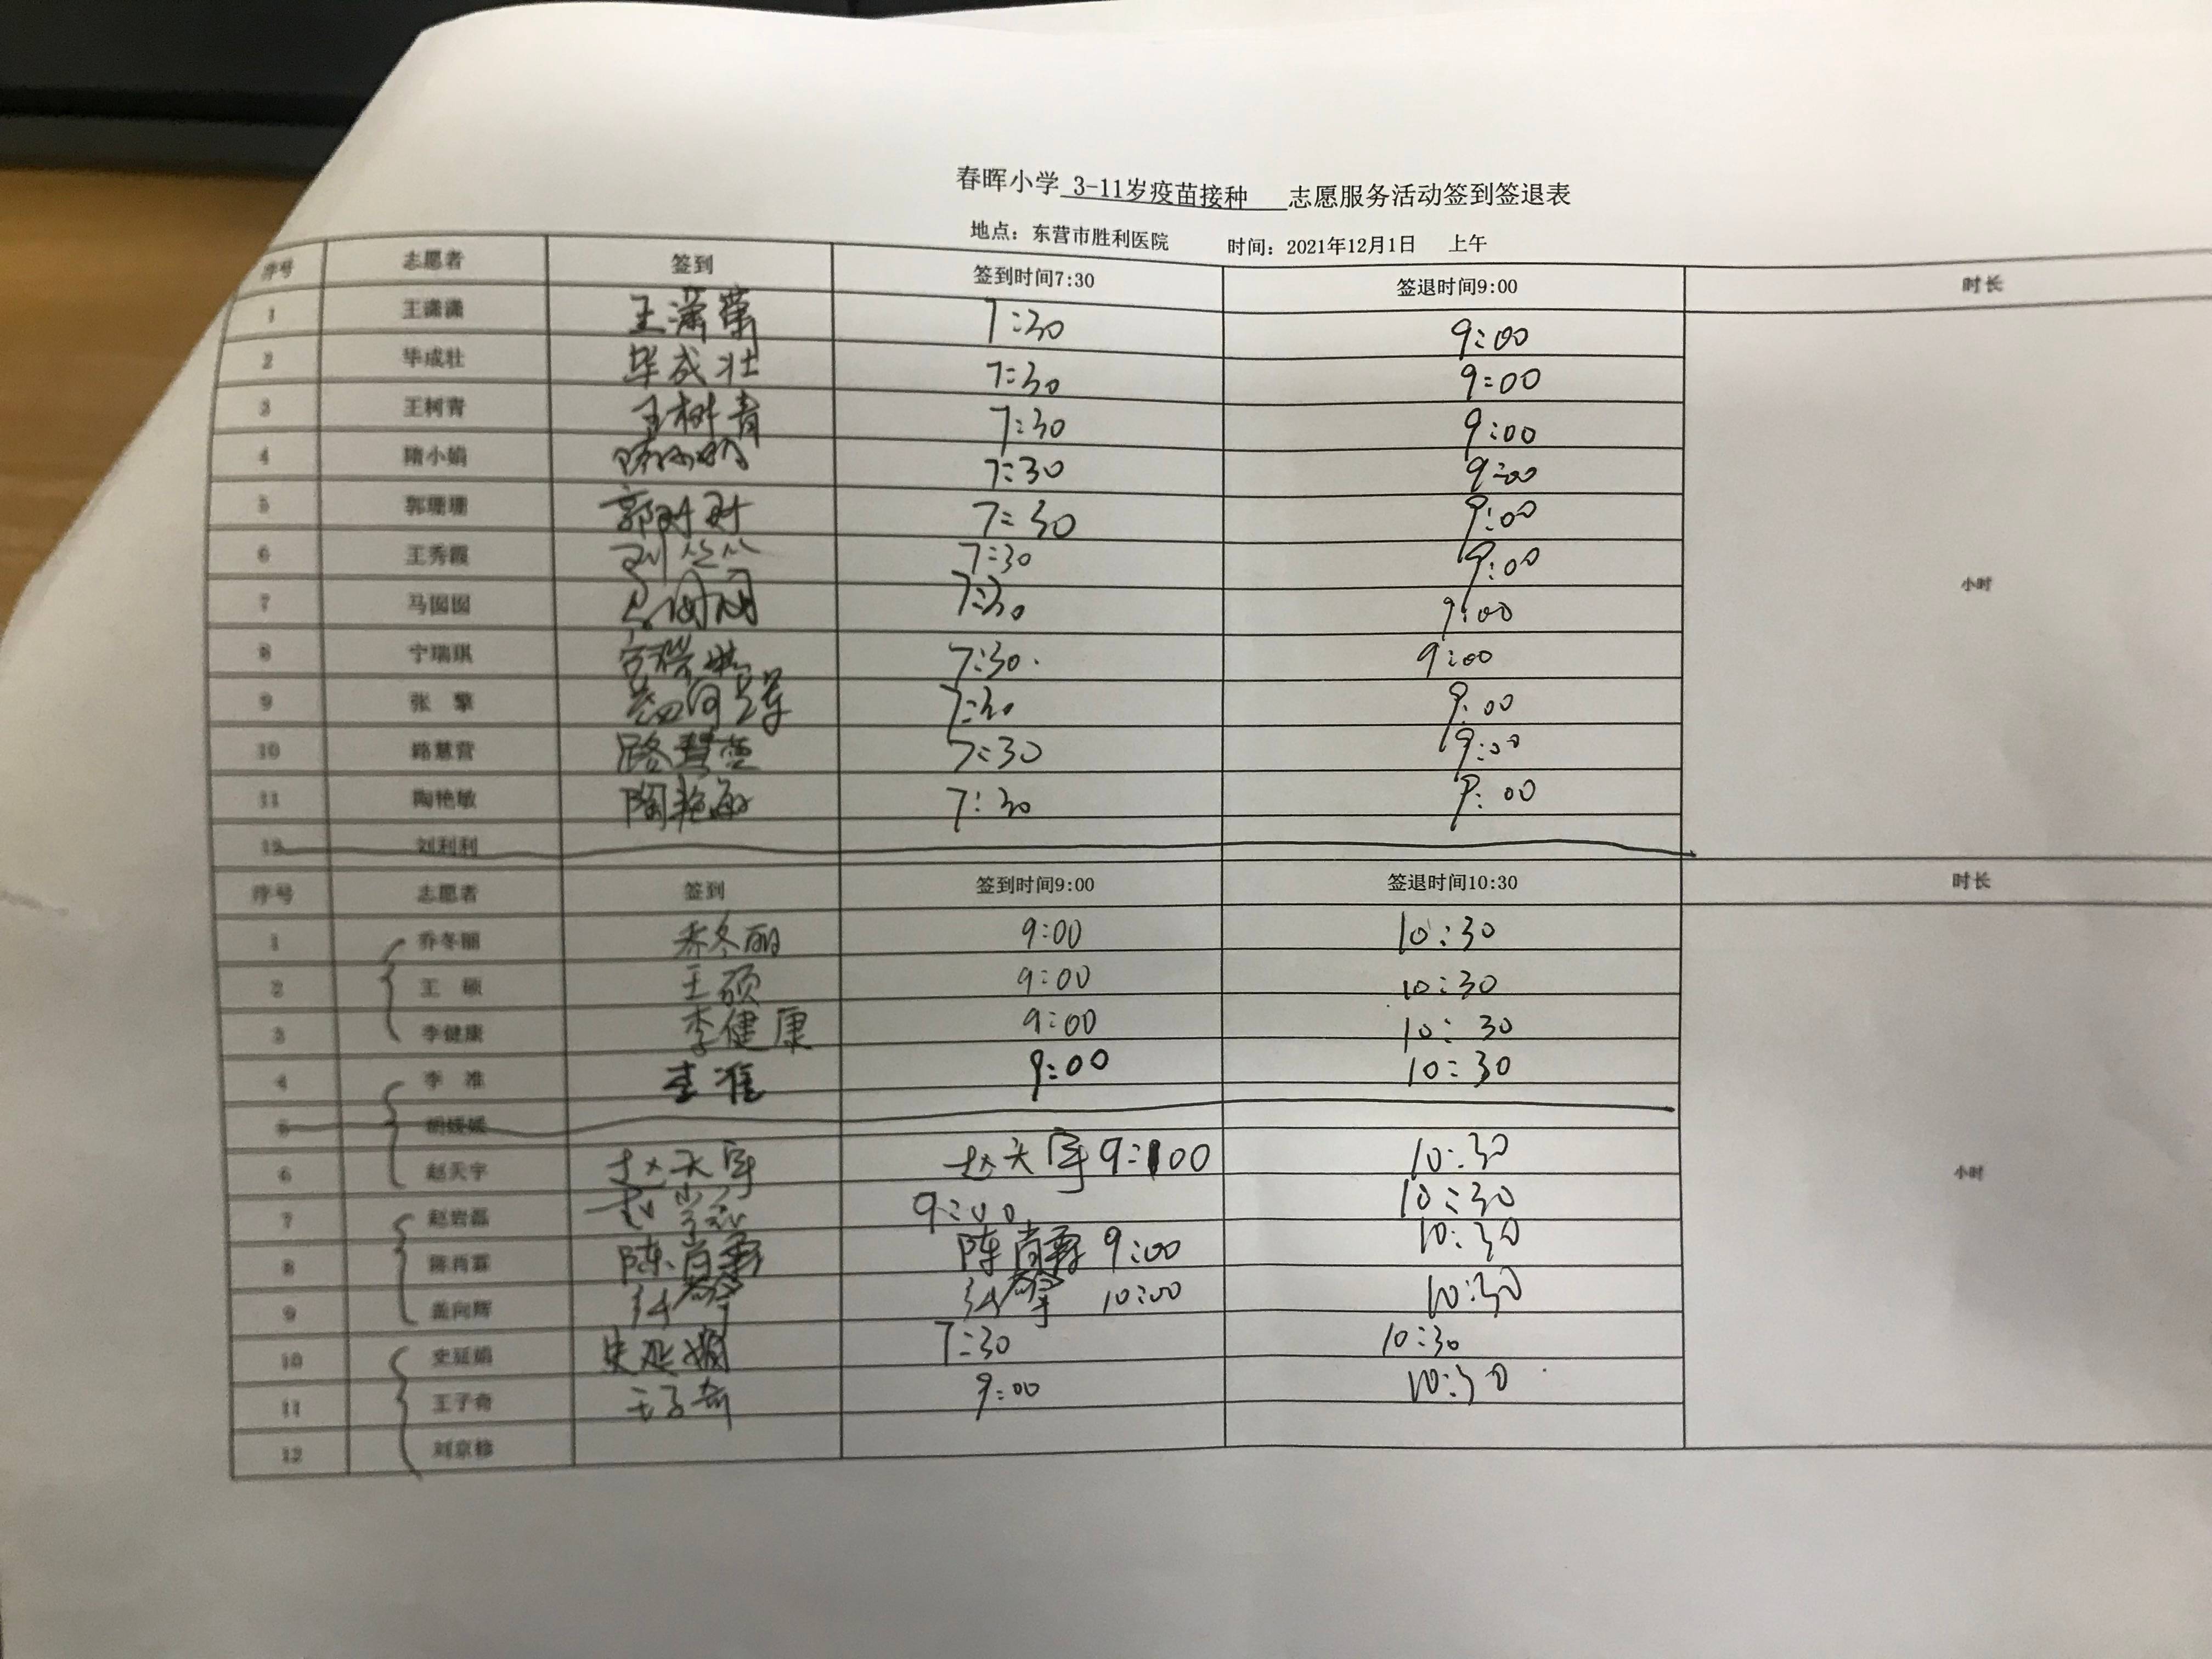 春晖小学 3-11岁疫苗接种 志愿服务活动签到签退表
地点：东营市胜利医院 时间：2021年12月1日 上午
序号 志愿者 签到 签到时间7:30 签退时间9:00 时长
1 王潇潇 王潇潇 7:30 9:00
2 毕成壮 毕成壮 7:30 9:00
3 王树青 王树青 7:30 9:00
4 隋小娟 隋小娟 7:30 9:00
5 郭珊珊 郭珊珊 7:30 9:00
6 王秀霞 刘 7:30 9:00
7 马囡囡 7:30 9:00
小时
8 宁瑞琪 宁瑞琪 7:30. 9:00
9 张 擎 盖向辉 7:30 9:00
10 路慧营 路慧营 7:30 9:00
11 陶艳敏 陶艳敏 7:30 9:00
12 刘利利
序号 志愿者 签到 签到时间9:00 签退时间10:30 时长
1 乔冬丽 乔冬丽 9:00 10:30
2 王 硕 王硕 9:00 10:30
3 李健康 李健康 9:00 10:30
4 李 准 李准 9:00 10:30
5 胡媛媛
6 赵天宇 赵天宇 赵天宇 9:00 10:30
小时
7 赵岩磊 赵岩磊 9:00 10:30
8 陈肖霖 陈肖霖 陈肖霖 9:00 10:30
9 盖向辉 张擎 张擎 10:00 10:30
10 史延娟 史延娟 7:30 10:30
11 王子奇 王子奇 9:00 10:30
12 刘京修